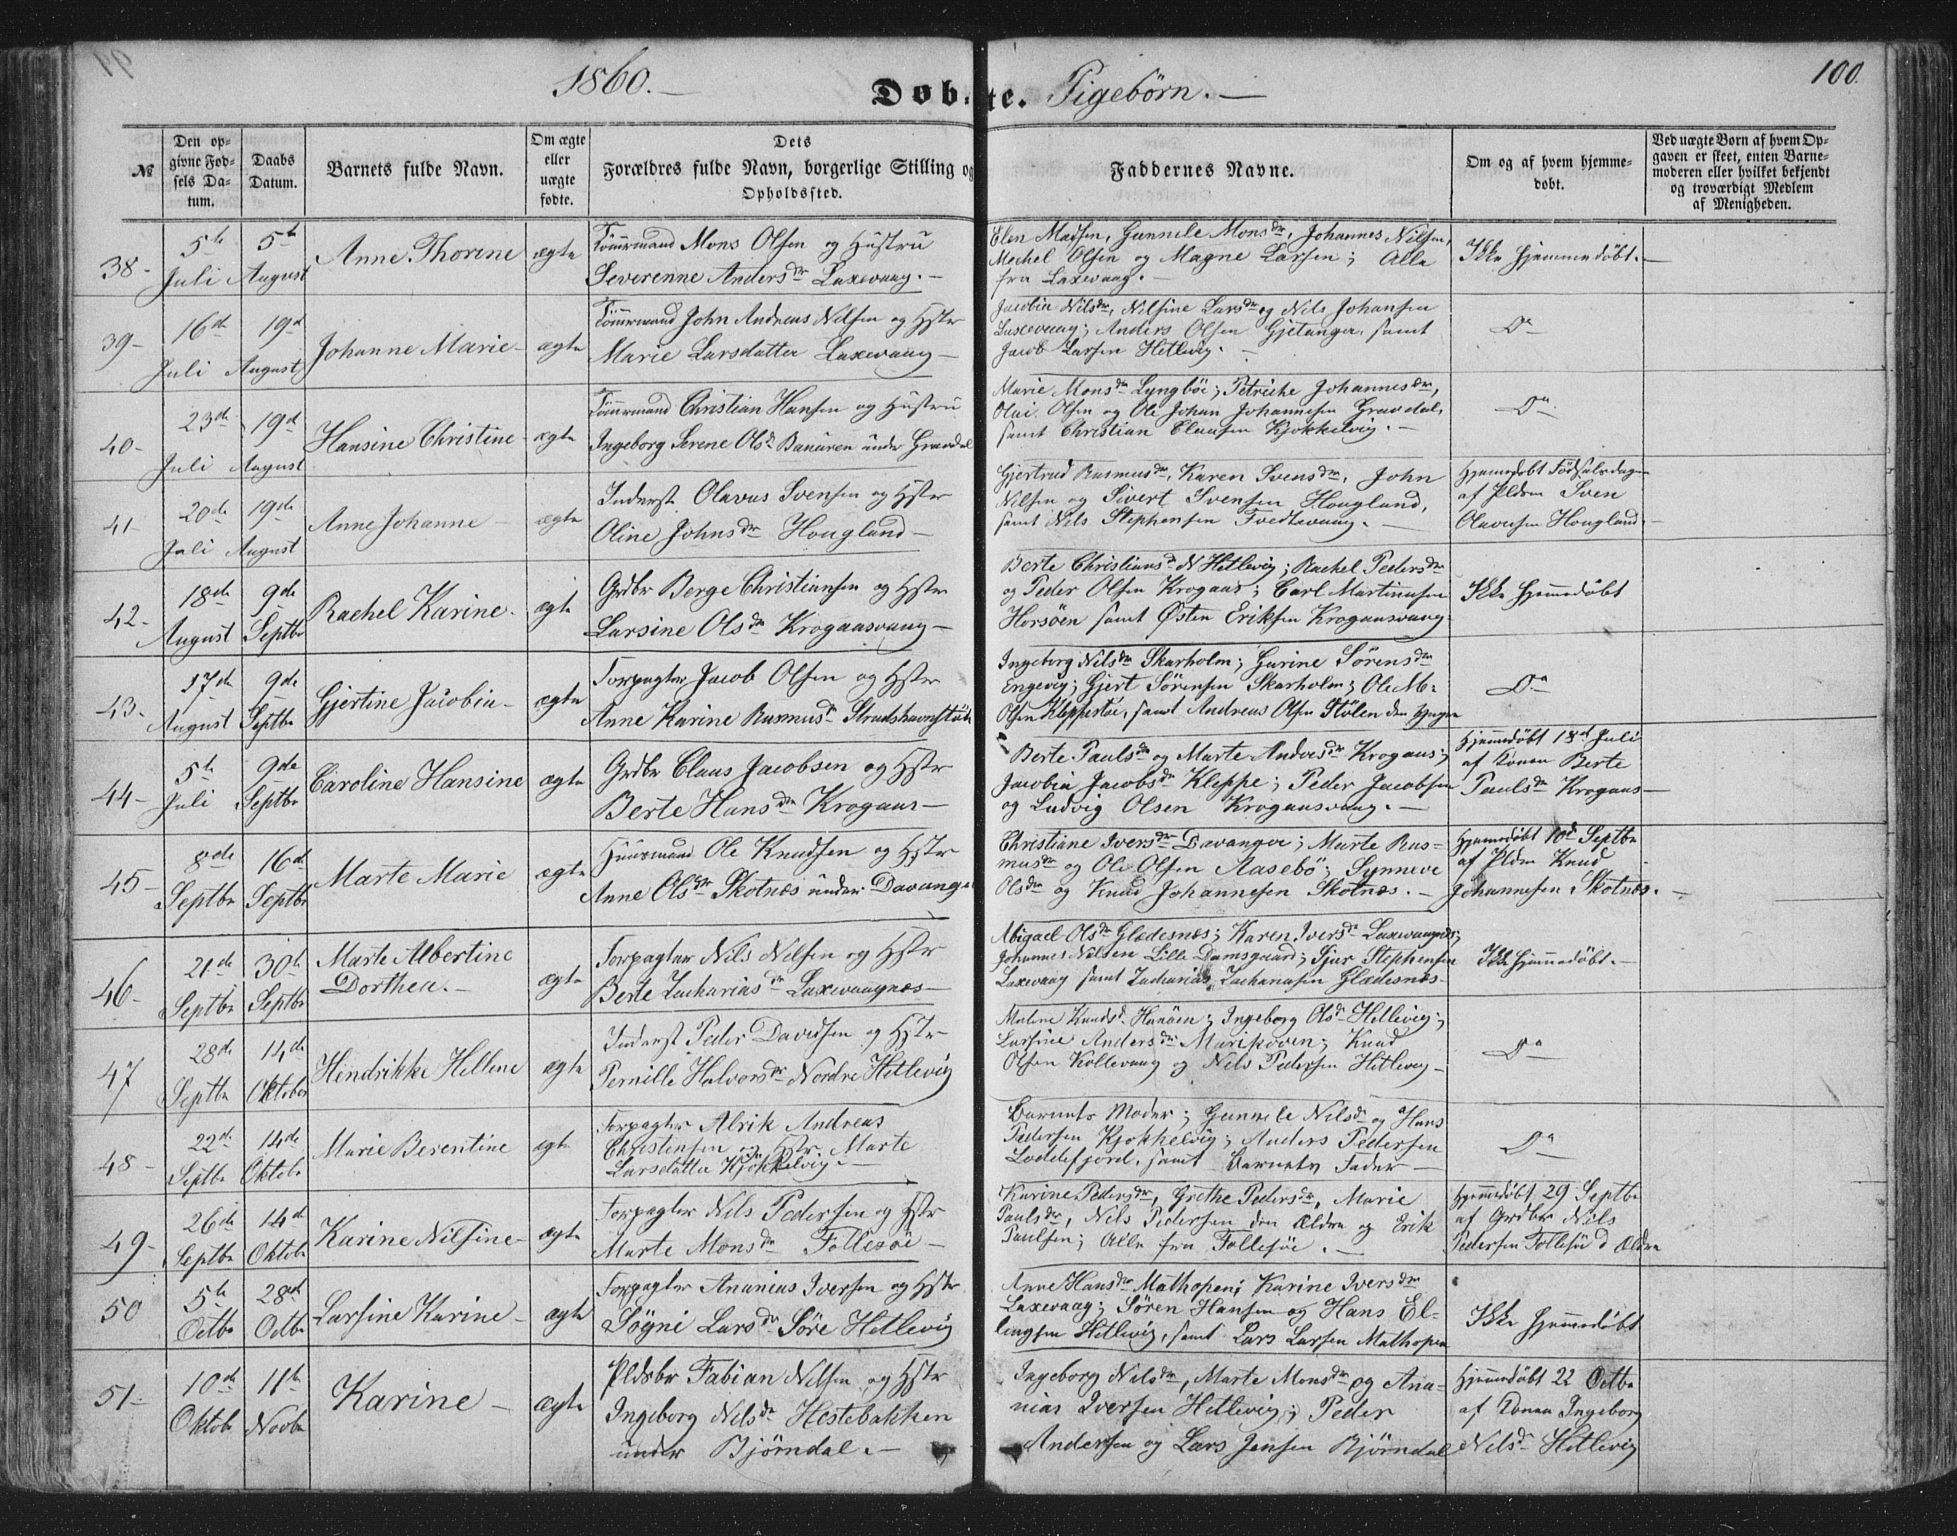 1860.
Døbte. Pigebørn.
100
№
Den op-
givne Fød-
sels Da-
tum.
Daabs
Datum.
Barnets fulde Navn.
Om ægte
eller
uægte
fødte.
Dets
Forældres fulde Navn, borgerlige Stilling og
Opholdssted.
Faddernes Navne.
Om og af hvem hjemme-
døbt.
Ved uægte Børn af hvem Op-
gaven er skeet, enten Barne-
moderen eller hvilket bekjendt
og troværdigt Medlem
af Menigheden.
38- 5te Juli 5te August Anne Thorine ægte
Tømrmand Mons Olsen og Hustru
Severenne Andersdr Laxevaag.
Elen Madsen, Gunnile Monsdr, Johannes Nilsen,
Mechel Olsen og Magne Larsen; Alle
fra Laxevaag.
Ikke hjemmedøbt.
39- 16de Juli 19d August Johanne Marie ægte
Tømrmand John Andreas Nilsen og Hstr
Marie Larsdatter Laxevaag
Jacobia Nilsdr, Nilsine Larsdr og Nils Johansen
Laxevaag; Anders Olsen Gjetanger, samt
Jacob Larsen Hetlevig.
Do
40- 23de Juli 19d August Hansine Christine ægte
Tømrmand Christian Hansen og Hustru
Ingeborg Serene Olsdr Banåren under Gravdal
Marie Monsdr Lyngbøe; Petriche Johannesdr,
Olai Olsen og Ole Johan Johannesen Gravdal,
samt Christian Clausen Kjøkkelvig.
Do
41 20de Juli 19de August Anne Johanne ægte
Inderst Olavus Svensen og Hstr
Oline Johnsdr Hougland
Gjertrud Rasmusdr, Karen Svensdr, John
Nilsen og Sivert Svensen Hougland,
samt Nils Stephensen Tvedtevaag.
Hjemmedøbt Fødselsdagen
af Pldm Sven
Olavesen Hougland.
42- 18de August 9de Septbr Rachel Karine ægte
Grdbr Berge Christiansen og Hstr
Larsine Olsdr Krogaasvaag
Berte Christiansdr N Hetlevig; Rachel Pedersdr
og Peder Olsen Krogaas; Carl Martinusen
Horsøen samt Østen Eriksen Krogaasvaag
Ikke hjemmedøbt
43- 17de August 9de Septbr Gjertine Jacobia ægte
Forpagter Jacob Olsen og Hstr
Anne Karine Rasmusdr Strudshavnstøle
Ingeborg Nilsdr Skarholm; Gurine Sørensdr
Engevig; Gjert Sørensen Skarholm; Ole M:
Olsen Kleppestøe, samt Andreas Olsen Stølen den Yngre
Do
44- 5te Juli 9de Septbr Caroline Hansine ægte
Grdbr Claus Jacobsen og Hstr
Berte Hansdr Krogaas
Berte Paulsdr og Marte Andersdr Krogaas;
Jacobia Jacobsdr Kleppe; Peder Jacobsen
og Ludvig Olsen Krogaasvaag.
Hjemmedøbt 18de Juli
af Konen Berte
Paulsdr Krogaas
45- 8de Septbr 16d Septbr Marte Marie ægte
Huusmand Ole Knudsen og Hstr
Anne Olsdr Skotnæs under Davanger
Christiane Iversdr Davanger; Marte Ras-
musdr og Ole Olsen Aasebø; Synneve
Olsdr og Knud Johannesen Skotnæs.
Hjemmedøbt 10d Septbr
af Pldm Knud
Johannesen Skotnæs.
46- 21de Septbr 30te Septbr Marte Albertine
Dorthea. ægte
Forpagter Nils Nilsen og Hstr
Berte Zachariasdr Laxevaagnæs
Abigael Olsdr Glædesnæs; Karen Iversdr Laxevaagnæs;
Johannes Nilsen Lille Damsgaard; Sjur Stephensen
Laxevaag samt Zacharias Zachariasen Glædesnæs
Ikke hjemmedøbt.
47 28de Septbr 14de Oktober Hindrikke Hellene ægte
Inderst Peder Davidsen og Hstr
Pernille Halvorsdr Nordre Hetlevig
Malene Knudsd Hanøen; Ingeborg Olsdr Hetlevig;
Larsine Andersdr Marikoven; Knud
Olsen Kollevaag og Nils Pedersen Hetlevig
Do
48- 22de Septbr 14de Oktobr Marie Berentine ægte
Forpagter Alrik Andreas
Christensen og Hstr Marte
Larsdatter Kjøkkelvig.
Barnets Moder; Gunnile Nilsdr og Hans
Pedersen Kjøkkelvig; Anders Pedersen
Loddefjord, samt Barnets Fader
Do
49- 26de Septbr 14d Oktobr Karine Nilsine ægte
Forpagter Nils Pedersen og Hstr
Marte Monsdr Follesøe
Karine Pedersdr, Grethe Pedersdr, Marie
Paulsdr, Nils Pedersen den Ældre og Erik
Paulsen; Alle fra Follesøe.
Hjemmedøbt 29 Septbr
af Grdbr Nils
Pedersen Follesøe d Ældre
50 5te Octbr 28de Octbr Larsine Karine ægte
Forpagter Ananias Iversen og Hstr
Søgni Larsdr Søre Hetlevig
Anne Hansdr Mathopen; Karine Iversdr
Laxevaag; Søren Hansen og Hans El-
lingsen Hetlevig, samt Lars Larsen Mathopen
Ikke hjemmedøbt
51- 10de Oktobr 11te Novbr Karine ægte
Pldsbr Fabian Nilsen og Hstr
Ingeborg Nilsdr Hestebakken
under Bjørndal.
Ingeborg Nilsdr, Marte Monsdr og Ana-
nias Iversen Hetlevig; Peder
Andersen og Lars Jensen Bjørndal
Hjemmedøbt 22 Octbr
af Konen Ingeborg
Nilsdr Hetlevig